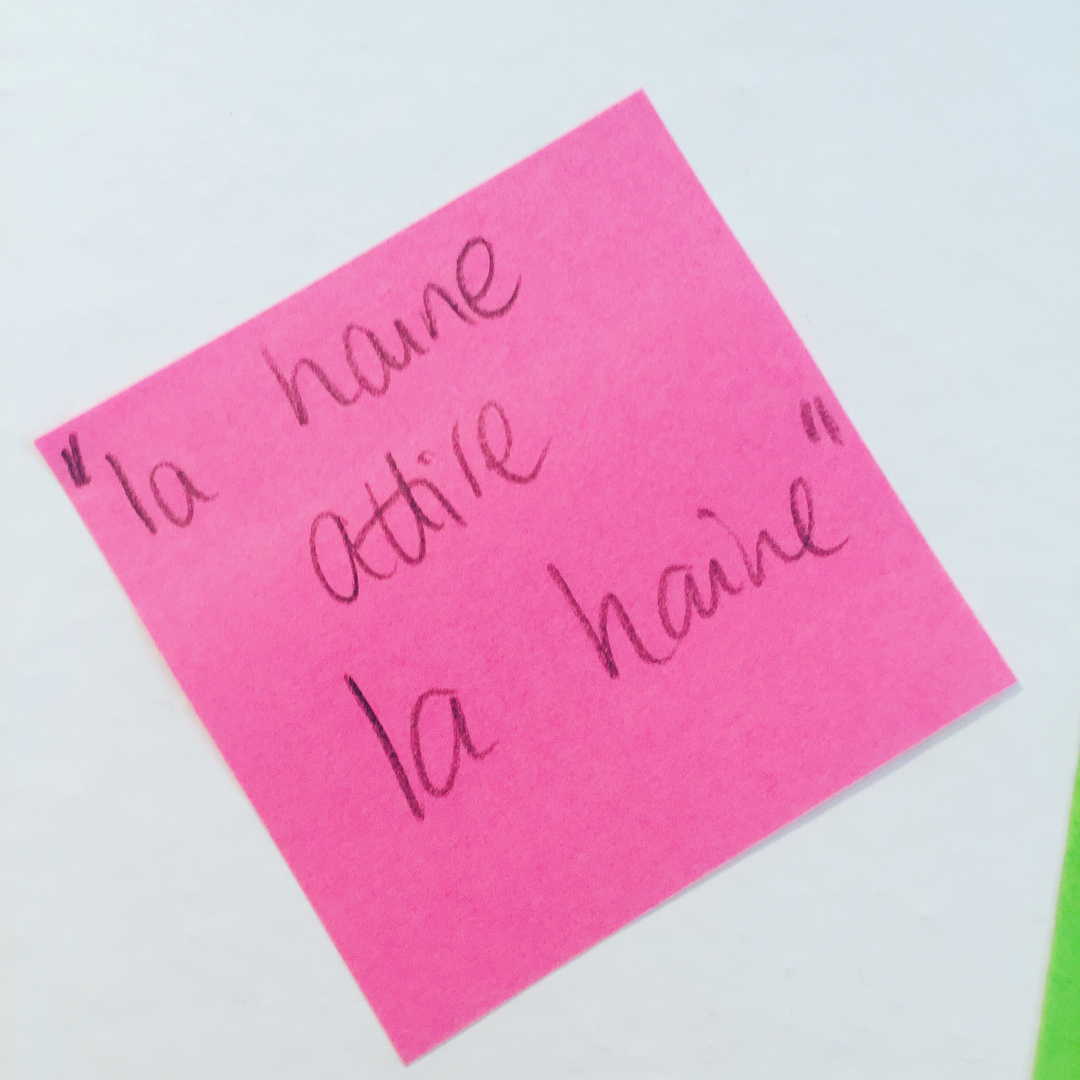 "la haine
attire
la haine"